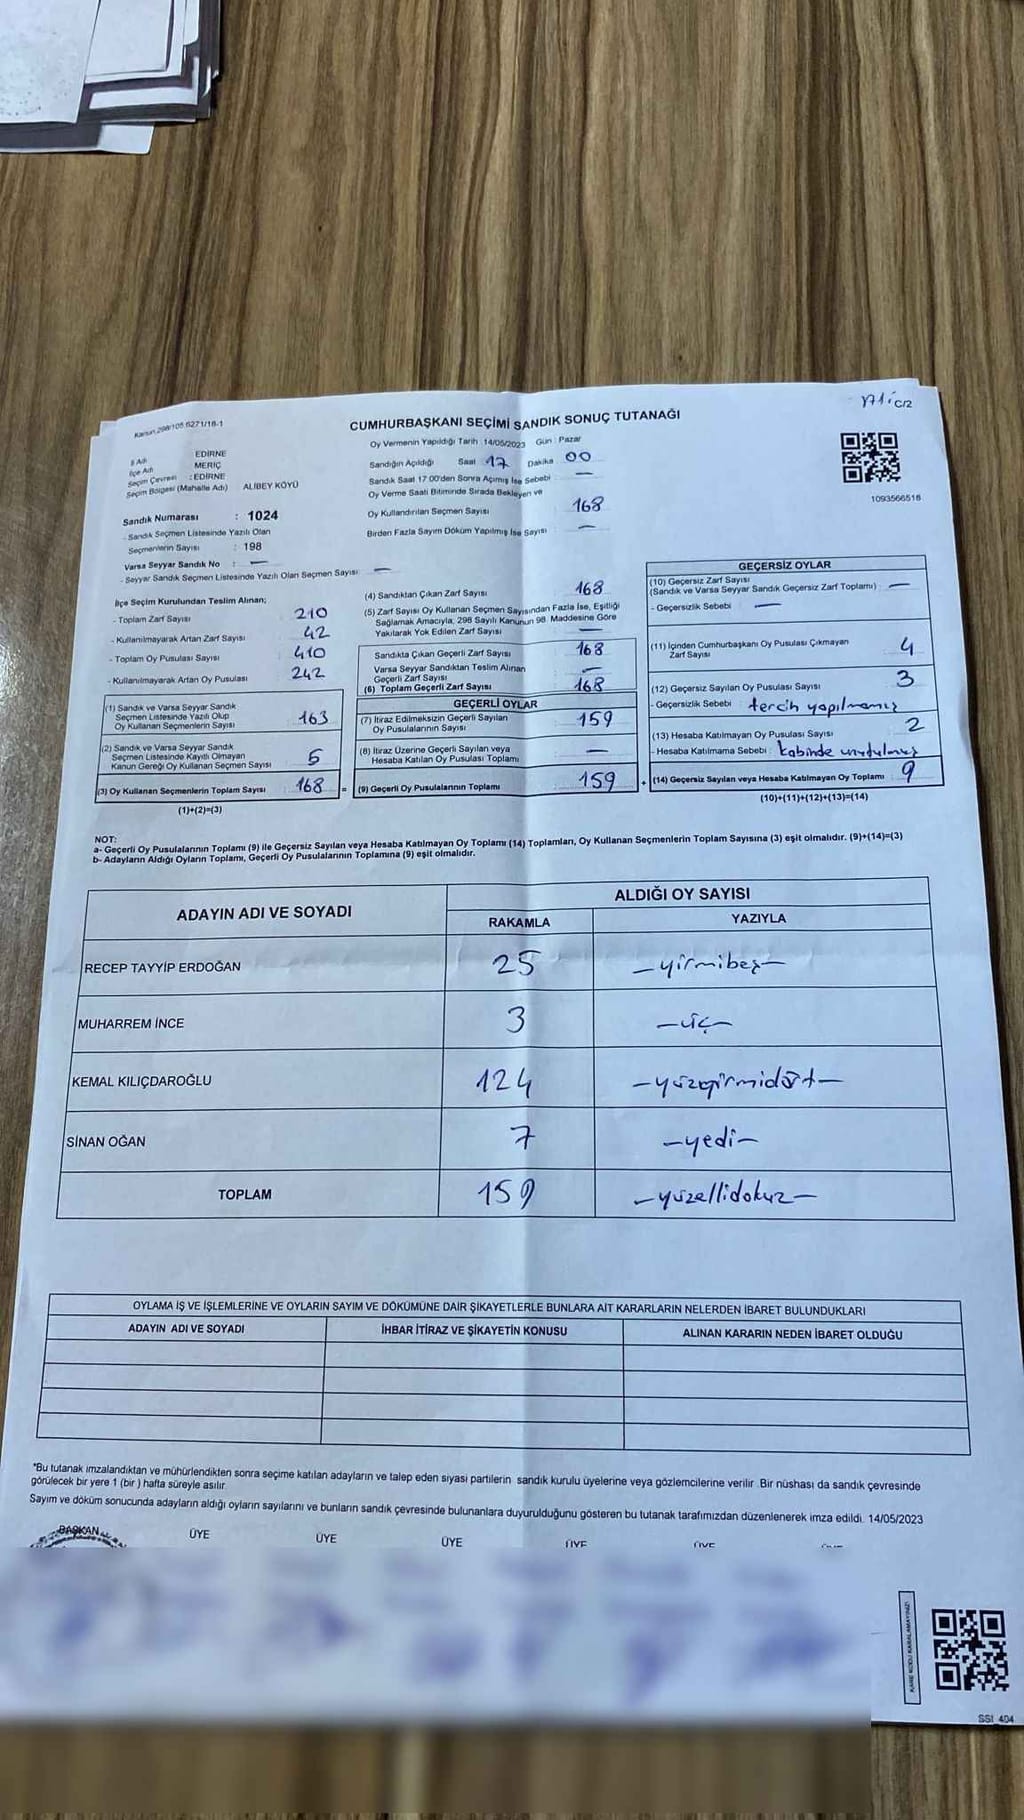 Kanun 298/105 6271/18-1
CUMHURBAŞKANI SEÇİMİ SANDIK SONUÇ TUTANAĞI
İl Adı EDİRNE
İlçe Adı MERİÇ
Seçim Çevresi : EDİRNE
Seçim Bölgesi (Mahalle Adı) ALİBEY KÖYÜ
Sandık Numarası : 1024
- Sandık Seçmen Listesinde Yazılı Olan
Seçmenlerin Sayısı : 198
Varsa Seyyar Sandık No : —
- Seyyar Sandık Seçmen Listesinde Yazılı Olan Seçmen Sayısı : —
Oy Vermenin Yapıldığı Tarih 14/05/2023 Gün : Pazar
Sandığın Açıldığı Saat 17 Dakika 00
Sandık Saat 17:00'den Sonra Açımış İse Sebebi : —
Oy Verme Saati Bitiminde Sırada Bekleyen ve
Oy Kullandırılan Seçmen Sayısı 168
Birden Fazla Sayım Döküm Yapılmış İse Sayısı —
1093566518
İlçe Seçim Kurulundan Teslim Alınan;
- Toplam Zarf Sayısı : 210
- Kullanılmayarak Artan Zarf Sayısı : 42
- Toplam Oy Pusulası Sayısı : 410
- Kullanılmayarak Artan Oy Pusulası : 242
(1) Sandık ve Varsa Seyyar Sandık
Seçmen Listesinde Yazılı Olup
Oy Kullanan Seçmenlerin Sayısı : 163
(2) Sandık ve Varsa Seyyar Sandık
Seçmen Listesinde Kayıtlı Olmayan
Kanun Gereği Oy Kullanan Seçmen Sayısı : 5
(3) Oy Kullanan Seçmenlerin Toplam Sayısı : 168 =
(1)+(2)=(3)
(4) Sandıktan Çıkan Zarf Sayısı : 168
(5) Zarf Sayısı Oy Kullanan Seçmen Sayısından Fazla İse, Eşitliği
Sağlamak Amacıyla, 298 Sayılı Kanunun 98. Maddesine Göre
Yakılarak Yok Edilen Zarf Sayısı : —
Sandıkta Çıkan Geçerli Zarf Sayısı : 168
Varsa Seyyar Sandıktan Teslim Alınan
Geçerli Zarf Sayısı : —
(6) Toplam Geçerli Zarf Sayısı : 168
GEÇERLİ OYLAR
(7) İtiraz Edilmeksizin Geçerli Sayılan
Oy Pusulalarının Sayısı : 159
(8) İtiraz Üzerine Geçerli Sayılan veya
Hesaba Katılan Oy Pusulası Toplamı : —
(9) Geçerli Oy Pusulalarının Toplamı : 159 +
GEÇERSİZ OYLAR
(10) Geçersiz Zarf Sayısı
(Sandık ve Varsa Seyyar Sandık Geçersiz Zarf Toplamı) : —
- Geçersizlik Sebebi : —
(11) İçinden Cumhurbaşkanı Oy Pusulası Çıkmayan
Zarf Sayısı 4
(12) Geçersiz Sayılan Oy Pusulası Sayısı : 3
- Geçersizlik Sebebi : tercih yapılmamış
(13) Hesaba Katılmayan Oy Pusulası Sayısı : 2
- Hesaba Katılmama Sebebi : kabinde unutulmuş
(14) Geçersiz Sayılan veya Hesaba Katılmayan Oy Toplamı : 9
(10)+(11)+(12)+(13)=(14)
NOT:
a- Geçerli Oy Pusulalarının Toplamı (9) ile Geçersiz Sayılan veya Hesaba Katılmayan Oy Toplamı (14) Toplamları, Oy Kullanan Seçmenlerin Toplam Sayısına (3) eşit olmalıdır. (9)+(14)=(3)
b- Adayların Aldığı Oyların Toplamı, Geçerli Oy Pusulalarının Toplamına (9) eşit olmalıdır.
ADAYIN ADI VE SOYADI ALDIĞI OY SAYISI
RAKAMLA YAZIYLA
RECEP TAYYİP ERDOĞAN 25 —yirmibeş—
MUHARREM İNCE 3 —üç—
KEMAL KILIÇDAROĞLU 124 —yüzyirmidört—
SİNAN OĞAN 7 —yedi—
TOPLAM 159 —yüzellidokuz—
OYLAMA İŞ VE İŞLEMLERİNE VE OYLARIN SAYIM VE DÖKÜMÜNE DAİR ŞİKAYETLERLE BUNLARA AİT KARARLARIN NELERDEN İBARET BULUNDUKLARI
ADAYIN ADI VE SOYADI İHBAR İTİRAZ VE ŞİKAYETİN KONUSU ALINAN KARARIN NEDEN İBARET OLDUĞU
*Bu tutanak imzalandıktan ve mühürlendikten sonra seçime katılan adayların ve talep eden siyasi partilerin sandık kurulu üyelerine veya gözlemcilerine verilir. Bir nüshası da sandık çevresinde
görülecek bir yere 1 (bir) hafta süreyle asılır.
Sayım ve döküm sonucunda adayların aldığı oyların sayılarını ve bunların sandık çevresinde bulunanlara duyurulduğunu gösteren bu tutanak tarafımızdan düzenlenerek imza edildi. 14/05/2023
BAŞKAN ÜYE ÜYE ÜYE ÜYE ÜYE
KARE KODU KARALAMAYINIZ!
SSI_404